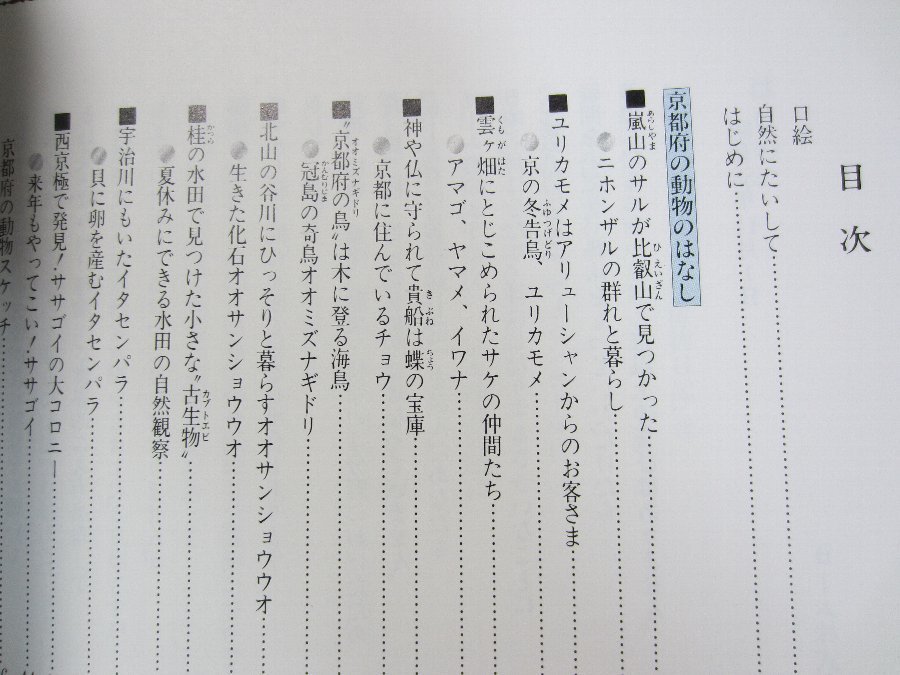 目次
口絵
自然にたいして
はじめに
京都府の動物のはなし
■嵐山のサルが比叡山で見つかった
ニホンザルの群れと暮らし
■ユリカモメはアリューシャンからのお客さま
京の冬告鳥、ユリカモメ
■雲ヶ畑にとじこめられたサケの仲間たち
アマゴ、ヤマメ、イワナ
■神や仏に守られて貴船は蝶の宝庫
京都に住んでいるチョウ
■〝京都府の鳥〟は木に登る海鳥
冠島の奇鳥オオミズナギドリ
■北山の谷川にひっそりと暮らすオオサンショウウオ
生きた化石オオサンショウウオ
■桂の水田で見つけた小さな〝古生物〟
夏休みにできる水田の自然観察
■宇治川にもいたイタセンパラ
貝に卵を産むイタセンパラ
■西京極で発見！ササゴイの大コロニー
来年もやってこい！ササゴイ
京都府の動物スケッチ